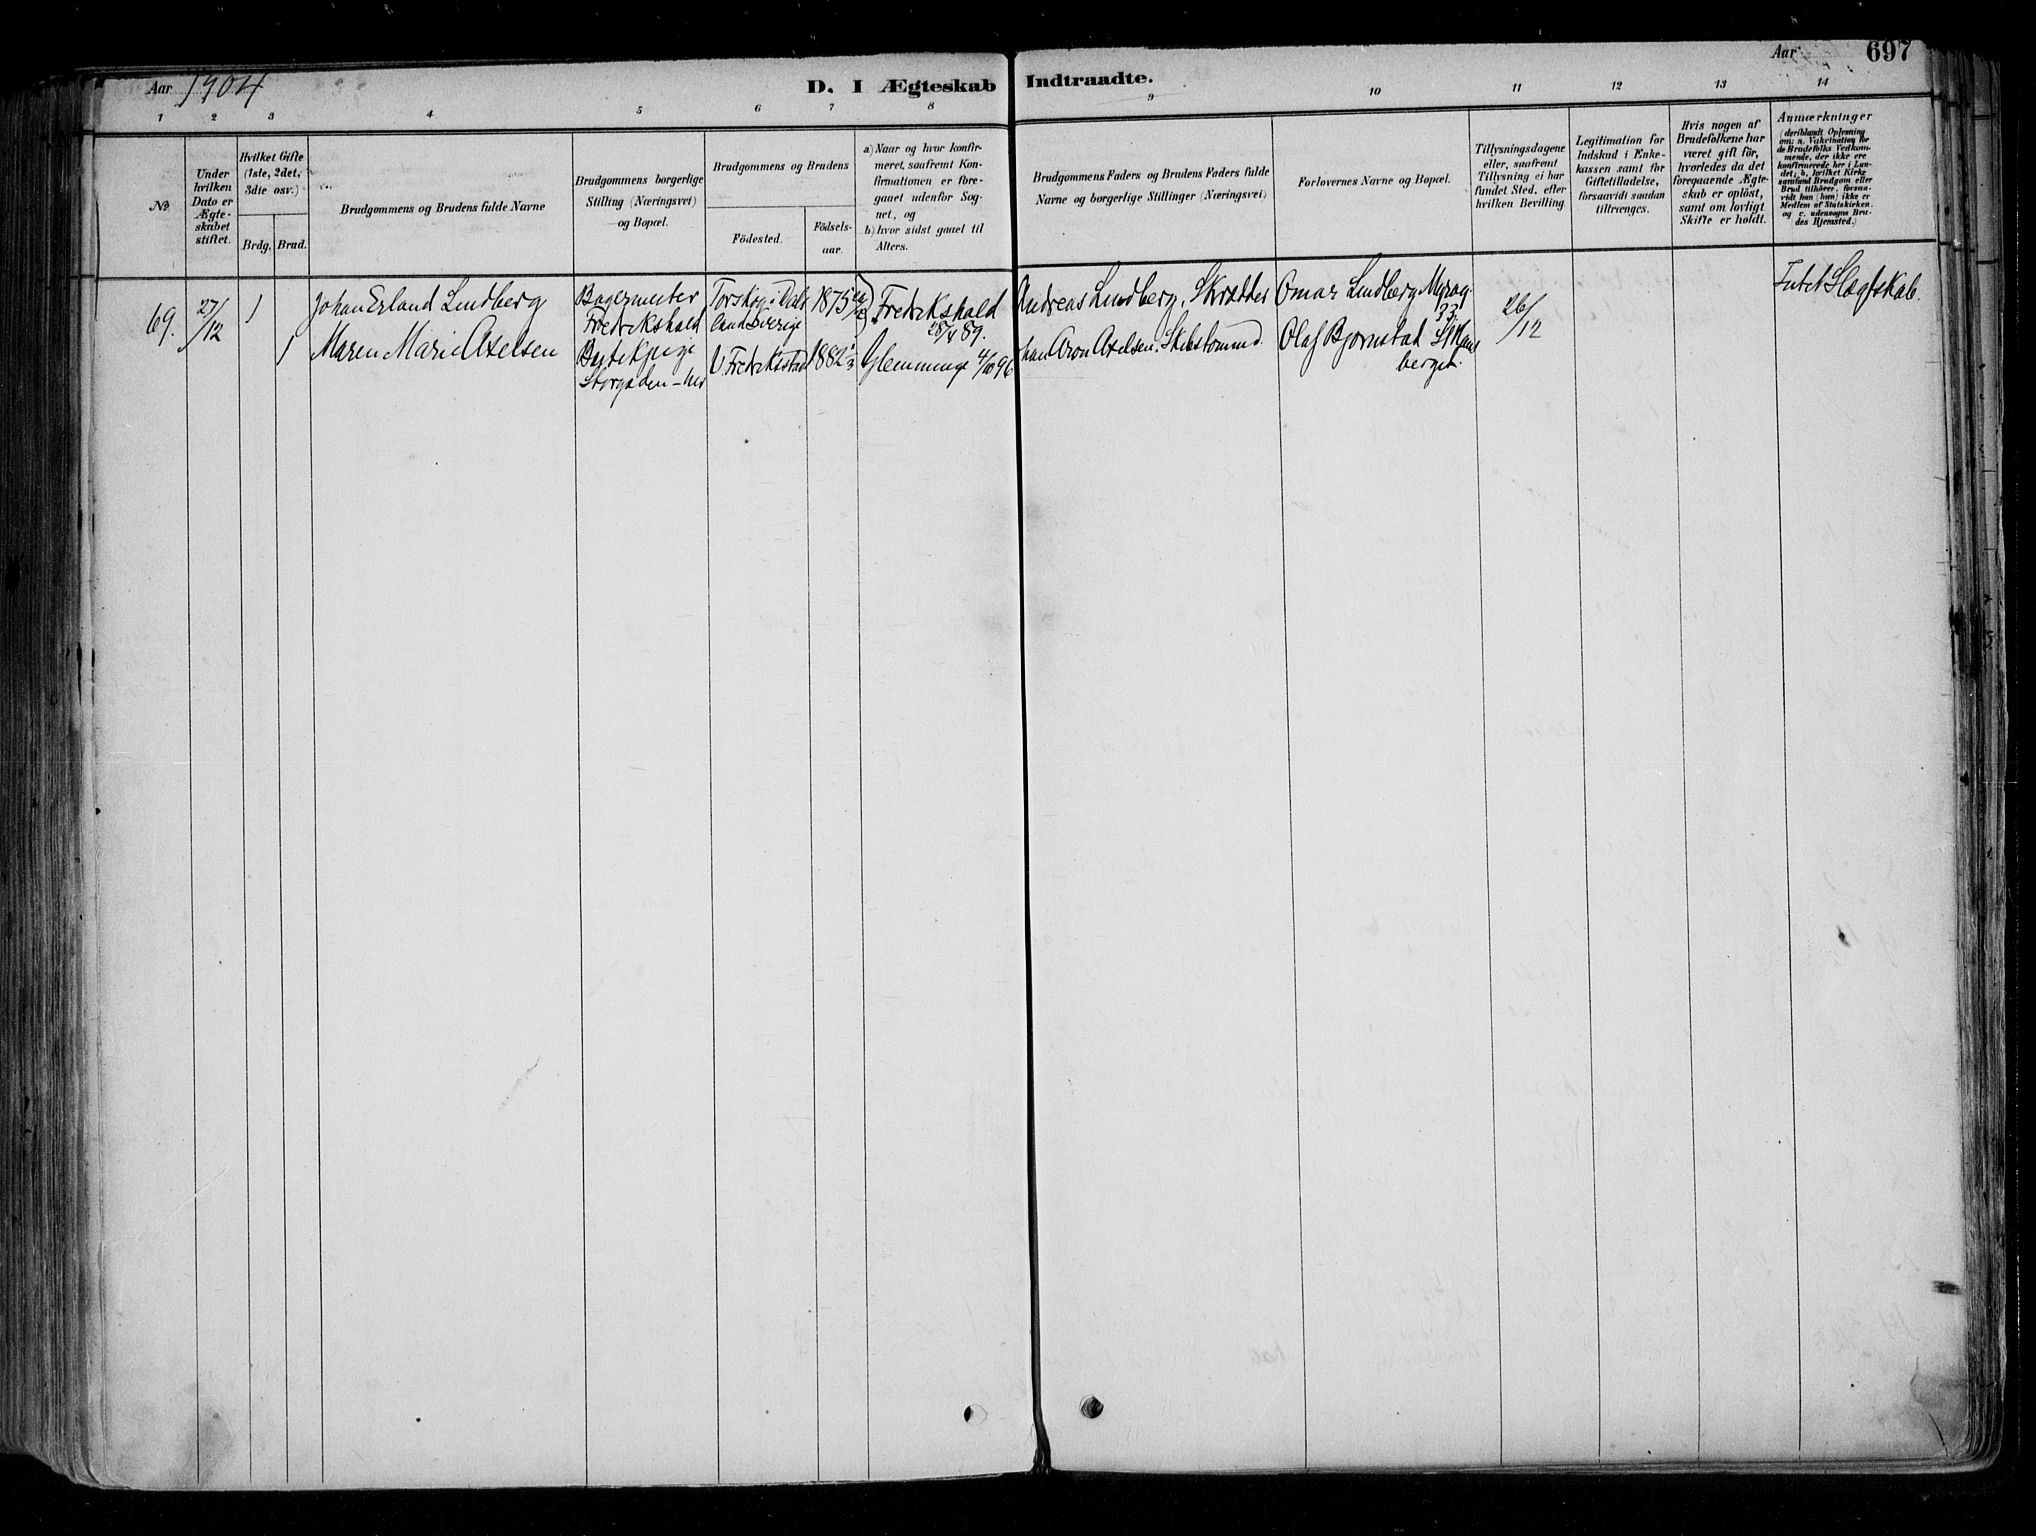 Aar 1904
D. I Ægteskab Indtraadte.
Aar
697
1 2 3 4 5 6 7 8 9 10 11 12 13 14
No
Under hvilken Dato er Ægte-skabet stiftet.
Hvilket Gifte (1ste, 2det, 3die osv.)
Brdg. Brud.
Brudgommens og Brudens fulde Navne
Brudgommens borgerlige Stilling (Næringsvei) og Bopæl.
Brudgommens og Brudens
Födested.
Födsels-aar.
a) Naar og hvor konfir-meret, saafremt Kon-firmationen er fore-gaaet udenfor Sog-net, og
b) hvor sidst gaaet til Alters.
Brudgommens Faders og Brudens Faders fulde Navne og borgerlige Stillinger (Næringsvei)
Forlovernes Navne og Bopæl.
Tillysningsdagene eller, saafremt Tillysning ei har fundet Sted, efter hvilken Bevilling.
Legitimation for Indskud i Enke-kassen samt for Giftetilladelse, forsaavidt saadan tiltrænges.
Hvis nogen af Brudefolkene har været gift för, hvorledes da det foregaaende Ægte-skab er oplöst, samt om lovligt Skifte er holdt.
Anmærkninger
(deriblandt Oplysning om: a. Vakcination for de Brudefolks Vedkom-mende, der ikke ere konfirmerede her i Lan-det; b. hvilket Kirke-samfund Brudgom eller Brud tilhörer, forsaa-vidt han (hun) ikke er Medlem af Statskirken, og c. udensogns Bru-des Hjemsted.)
69. 27/12 1
Johan Erland Lindberg
Bagermester
Fredrikshald
Torskog i Dals
land Sverige
1875
Fredrikshald
28/4 89.
Andreas Lundberg, Skrædder
Omar Lindberg Myrog.
33.
26/12
Intet Slægtskab.
1
Maren Marie Axelsen
Butikpige
Storgaden - her
V. Fredrikstad
1882
Glemminge 4/10 96
Aron Axelsen. Skibstømmd.
Olaf Bjørnstad St Hans
berget.